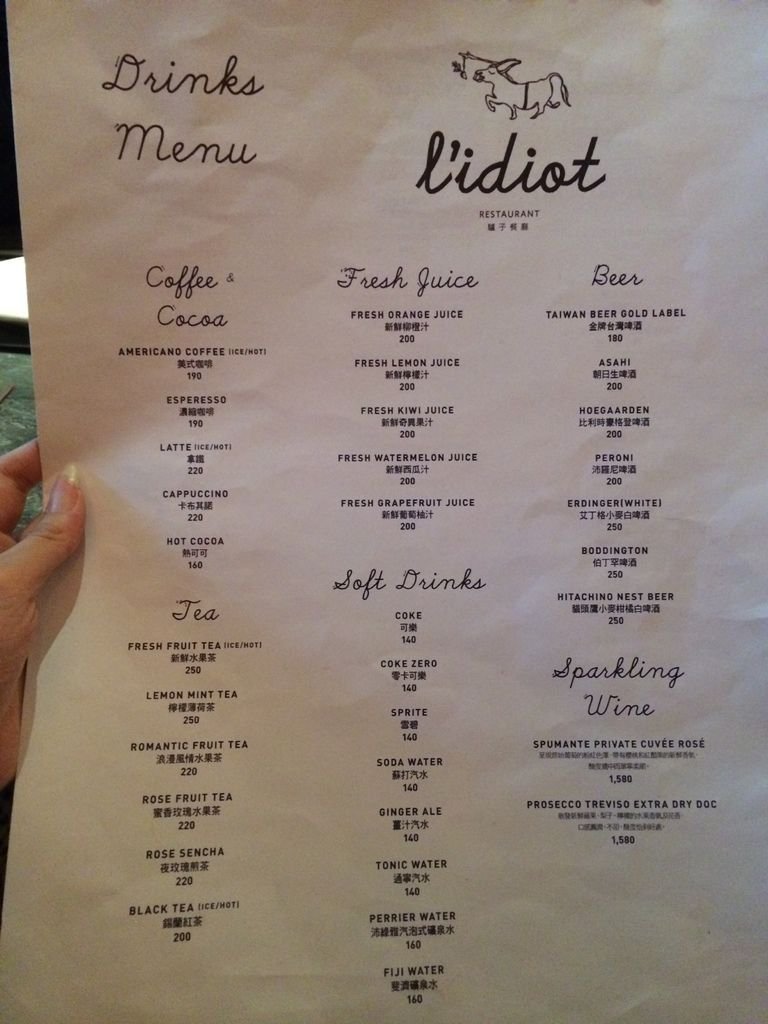 Drinks
Menu
l'idiot
RESTAURANT
驢子餐廳
Coffee &
Cocoa
AMERICANO COFFEE (ICE/HOT)
美式咖啡
190
ESPERESSO
濃縮咖啡
190
LATTE (ICE/HOT)
拿鐵
220
CAPPUCCINO
卡布其諾
220
HOT COCOA
熱可可
160
Tea
FRESH FRUIT TEA (ICE/HOT)
新鮮水果茶
250
LEMON MINT TEA
檸檬薄荷茶
250
ROMANTIC FRUIT TEA
浪漫風情水果茶
220
ROSE FRUIT TEA
蜜香玫瑰水果茶
220
ROSE SENCHA
夜玫瑰煎茶
220
BLACK TEA (ICE/HOT)
錫蘭紅茶
200
Fresh Juice
FRESH ORANGE JUICE
新鮮柳橙汁
200
FRESH LEMON JUICE
新鮮檸檬汁
200
FRESH KIWI JUICE
新鮮奇異果汁
200
FRESH WATERMELON JUICE
新鮮西瓜汁
200
FRESH GRAPEFRUIT JUICE
新鮮葡萄柚汁
200
Soft Drinks
COKE
可樂
140
COKE ZERO
零卡可樂
140
SPRITE
雪碧
140
SODA WATER
蘇打汽水
140
GINGER ALE
薑汁汽水
140
TONIC WATER
通寧汽水
140
PERRIER WATER
沛綠雅汽泡式礦泉水
160
FIJI WATER
斐濟礦泉水
160
Beer
TAIWAN BEER GOLD LABEL
金牌台灣啤酒
180
ASAHI
朝日生啤酒
200
HOEGAARDEN
比利時豪格登啤酒
200
PERONI
沛羅尼啤酒
200
ERDINGER(WHITE)
艾丁格小麥白啤酒
250
BODDINGTON
伯丁罕啤酒
250
HITACHINO NEST BEER
貓頭鷹小麥柑橘白啤酒
250
Sparkling
Wine
SPUMANTE PRIVATE CUVÉE ROSÉ
1,580
PROSECCO TREVISO EXTRA DRY DOC
1,580